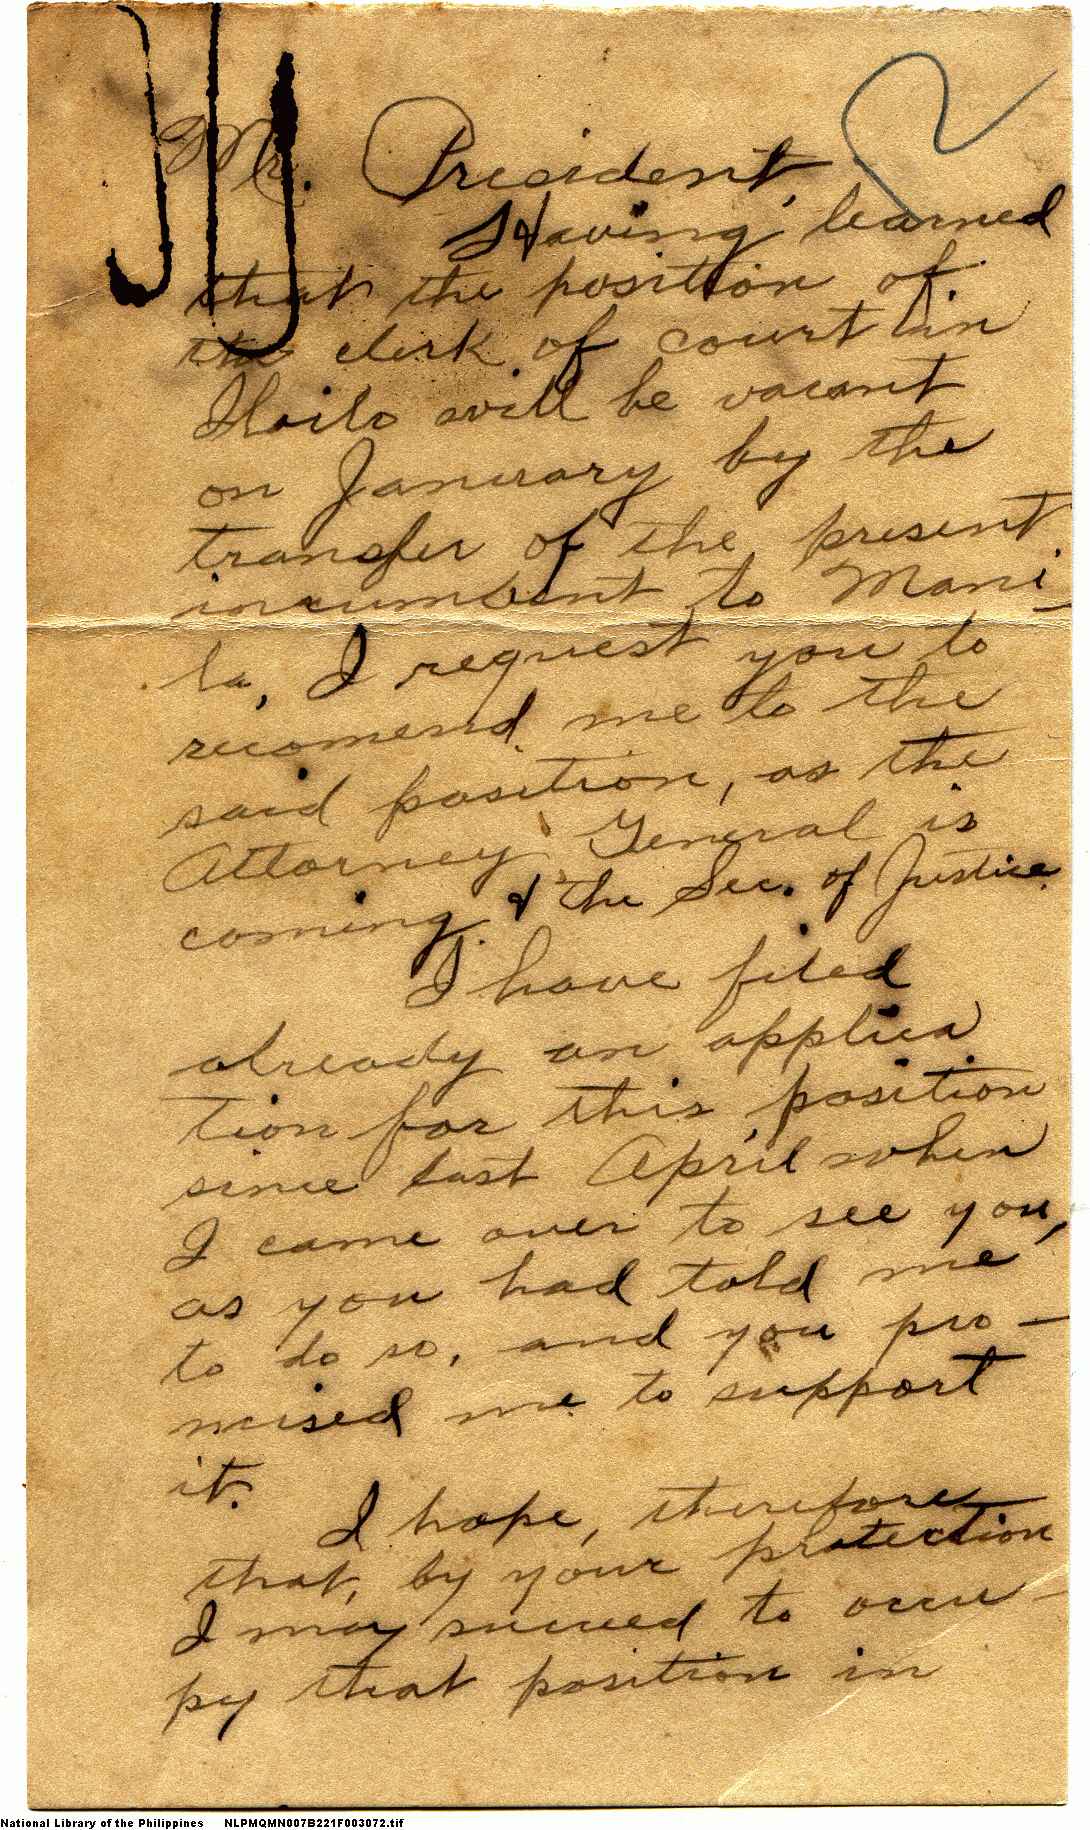 Mr. President,
Having learned
that the position of
the clerk of court in
Iloilo will be vacant
on January by the
transfer of the present
incumbent to Mani-
la, I request you to
recomend me to the
said position, as the
Attorney General is
coming & the Sec. of Justice.
I have filed
already an applica
tion for this position
since last April when
I came over to see you,
as you had told me
to do so, and you pro-
mised me to support
it.
I hope, therefore
that, by your protection
I may succeed to occu-
py that position in
National Library of the Philippines NLPMQMN007B221F003072.tif